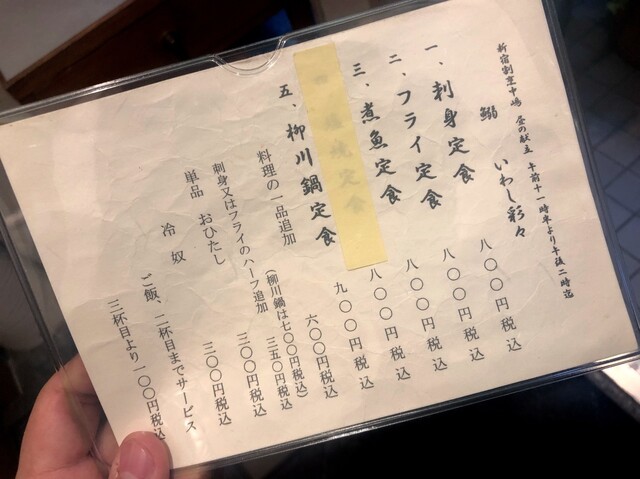 新宿割烹中嶋 昼の献立 午前十一時半より午後二時迄
鰯 いわし彩々
一、刺身定食 八〇〇円税込
二、フライ定食 八〇〇円税込
三、煮魚定食 八〇〇円税込
焼定食 八〇〇円税込
五、柳川鍋定食 九〇〇円税込
料理の一品追加 六〇〇円税込
(柳川鍋は七〇〇円税込)
刺身又はフライのハーフ追加 三五〇円税込
単品 おひたし 三〇〇円税込
冷奴 三〇〇円税込
ご飯、二杯目までサービス
三杯目より一〇〇円税込